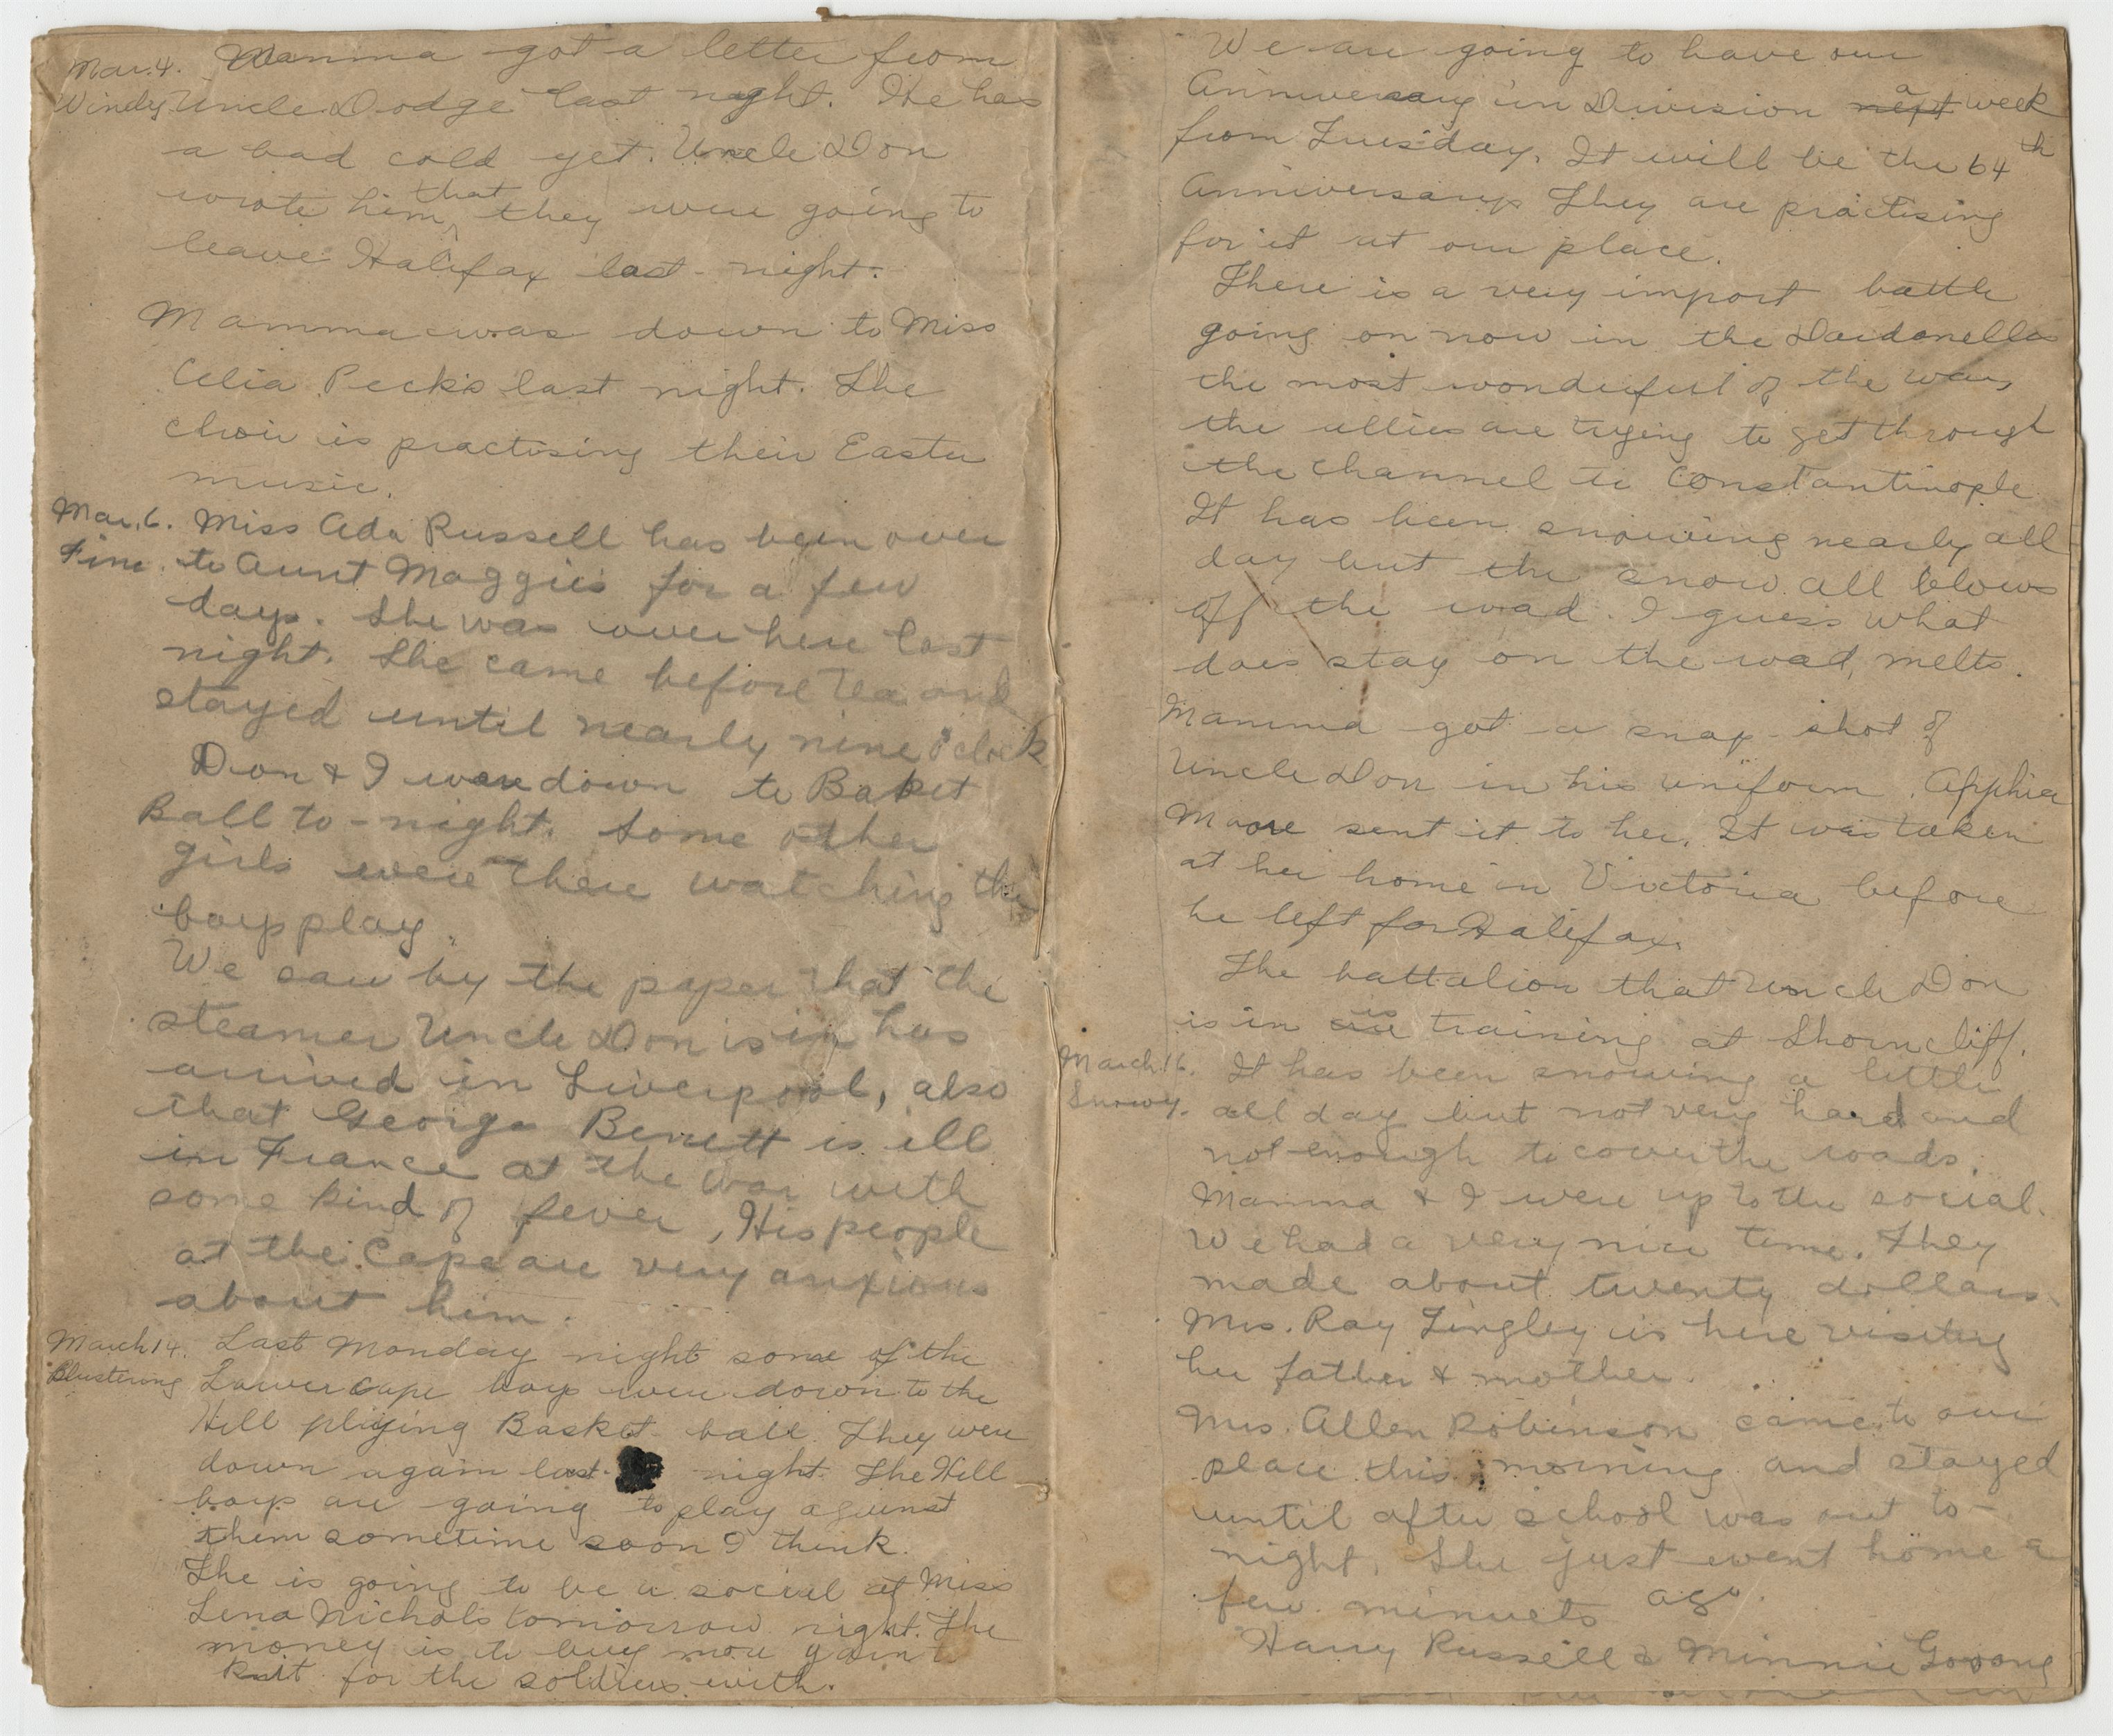 Mar. 4. Mamma got a letter from
Windy Uncle Dodge last night. He has
a bad cold yet. Uncle Don
wrote him that they were going to
leave Halifax last night.
Mamma was down to Miss
Celia Peck's last night. The
choir is practising their Easter
music.
Mar. 6. Miss Ada Russell has been over
Fine. to Aunt Maggie's for a few
days. She was over here last
night. She came before tea and
stayed until nearly nine o'clock
Don & I were down to Basket
Ball to-night. Some other
girls were there watching the
boys play.
We saw by the paper that the
steamer Uncle Don is in has
arrived in Liverpool, also
that George Benett is ill
in France at the war with
some kind of fever, His people
at the Cape are very anxious
about him.
March 14. Last Monday night some of the
Blustering Lower Cape boys were down to the
Hill plijing Basket ball. They were
down again last night. The Hill
boys are going to play against
them sometime soon I think.
The is going to be a social at Miss
Lena Nichols tomorrow night. The
money is to buy mor yarn to
knit for the soldiers with.
We are going to have our
Anniversary in Division next a week
from Tuesday. It will be the 64th
anniversary. They are practising
for it at our place.
There is a very import battle
going on now in the Dardanellas
the most wonderful of the war,
the allies are trying to get through
the channel to Constantinople
It has been snowing nearly all
day but the snow all blows
off the road. I guess what
does stay on the road, melts.
Mamma got a snap-shot of
Uncle Don in his uniform. Apphia
Moore sent it to her. It was taken
at her home in Victoria before
he left for Halifax.
The battalion that Uncle Don
is in are is training at Shorncliff.
March 16. It has been snowing a little
Snowy. all day but not very hard and
not enough to cover the roads.
Mamma & I were up to the social.
We had a very nice time. They
made about twenty dollars.
Mrs. Ray Tingley is here visiting
her father & mother.
Mrs. Allen Robinson came to our
place this morning and stayed
until after school was out to-
night. She just went home a
few minuets ago.
Harry Russell & Minnie